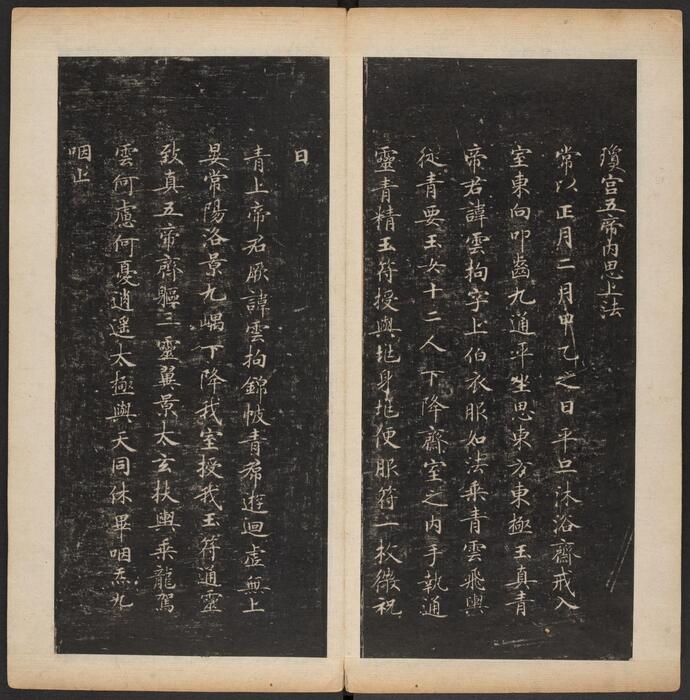 瓊宮五帝内思上法
常以正月二月甲乙之日平旦沐浴齋戒入
室東向叩齒九通平坐思東方東極玉真青
帝君諱雲拘字上伯衣服如法乘青雲飛輿
從青要玉女十二人下降齋室之内手執通
靈青精玉符授與兆身兆便服符一枚微祝
曰
青上帝君厥諱雲拘錦帔青帬遊迴虛無上
晏常陽洛景九嵎下降我室授我玉符通靈
致真五帝齊軀三靈翼景太玄扶輿乘龍駕
雲何慮何憂逍遙太極與天同休畢咽炁九
咽止